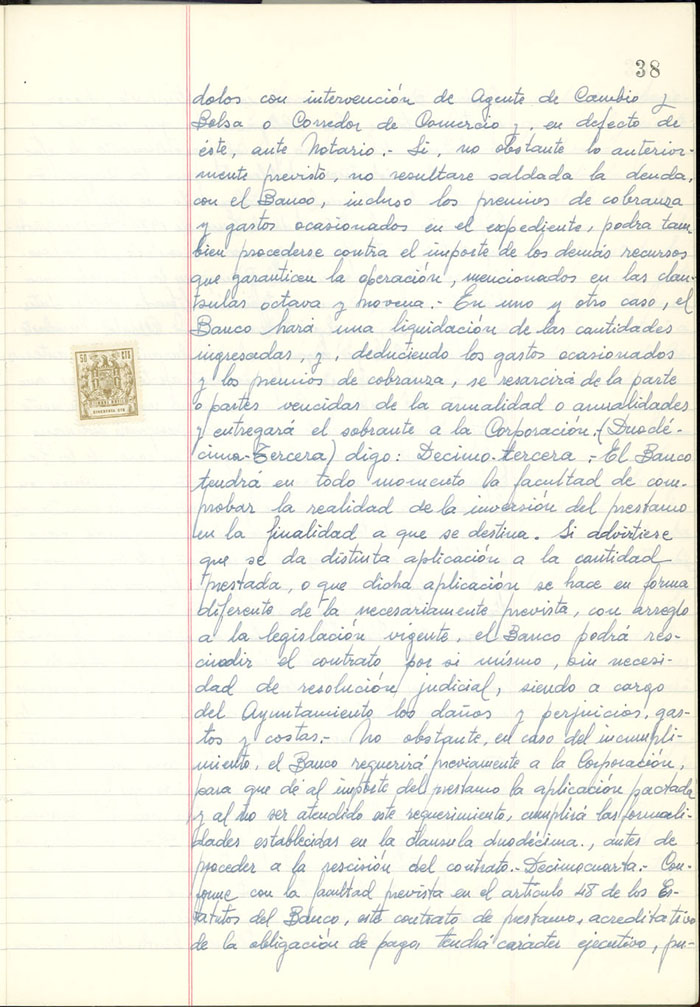 38
dolos con intervención de Agente de Cambio y
Bolsa o Corredor de Comercio y, en defecto de
éste, ante Notario.- Si, no obstante lo anterior-
mente previsto, no resultare saldada la deuda,
con el Banco, incluso los premios de cobranza
y gastos ocasionados en el expediente, podra tam
bien procederse contra el importe de los demás recursos
que garanticen la operación, mencionados en las clau-
sulas octava y novena.- En uno y otro caso, el
Banco hará una liquidación de las cantidades
ingresadas, y, deduciendo los gastos ocasionados
y los premios de cobranza, se resarcirá de la parte
o partes vencidas de la anualidad o anualidades
y entregará el sobrante a la Corporación.-(Duodé-
cima-Tercera) digo: Decimo-tercera.- El Banco
tendrá en todo momento la facultad de com-
probar la realidad de la inversión del prestamo
en la finalidad a que se destina. Si advirtiese
que se da distinta aplicación a la cantidad
prestada, o que dicha aplicación se hace en forma
diferente de la necesariamente prevista, con arreglo
a la legislación vigente, el Banco podrá res-
cindir el contrato por si mismo, sin necesi-
dad de resolución judicial, siendo a cargo
del Ayuntamiento los daños y perjuicios, gas-
tos y costas.- No obstante, en caso del incumpli-
miento, el Banco requerirá previamente a la Corporación,
para que dé al importe del prestamo la aplicación pactada
y al no ser atendido este requerimiento, cumplirá las formali-
dades establecidas en la clausula duodécima., antes de
proceder a la rescisión del contrato.- Decimocuarta.- Con-
forme con la facultad prevista en el artículo 48 de los Es-
tatutos del Banco, este contrato de prestamo, acreditativo
de la obligación de pago, tendrá carácter ejecutivo, pu-
50 CTS